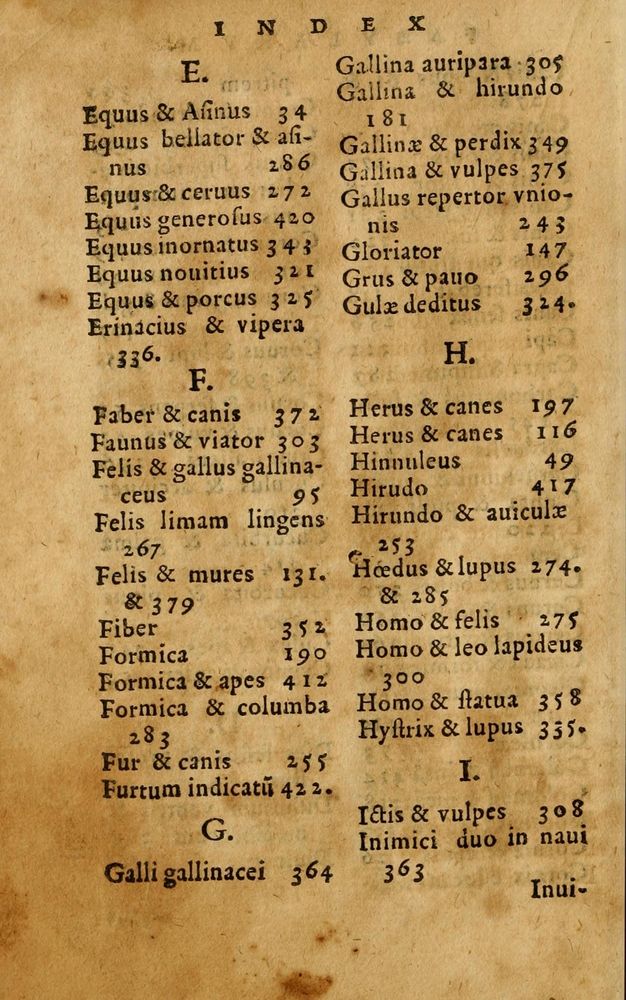 INDEX
E.
Equus & Aſinus 34
Equus bellator & aſi-
nus 286
Equus & ceruus 272
Equus generoſus 420
Equus inornatus 343
Equus nouitius 321
Equus & porcus 325
Erinacius & vipera
336.
F.
Faber & canis 372
Faunus & viator 303
Felis & gallus gallina-
ceus 95
Felis limam lingens
267
Felis & mures 131.
& 379
Fiber 352
Formica 190
Formica & apes 412
Formica & columba
283
Fur & canis 255
Furtum indicatū 422.
G.
Galli gallinacei 364
Gallina auripara 305
Gallina & hirundo
181
Gallinæ & perdix 349
Gallina & vulpes 375
Gallus repertor vnio-
nis 243
Gloriator 147
Grus & pauo 296
Gulæ deditus 324.
H.
Herus & canes 197
Herus & canes 116
Hinnuleus 49
Hirudo 417
Hirundo & auiculæ
253
Hœdus & lupus 274.
& 285
Homo & felis 275
Homo & leo lapideus
300
Homo & ſtatua 358
Hyſtrix & lupus 335.
I.
Ictis & vulpes 308
Inimici duo in naui
363
Inui-